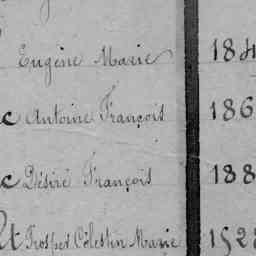 Eugène Marie 184
c Antoine François 186
c Désiré François 188
et Prosper Célestin Marie 1522